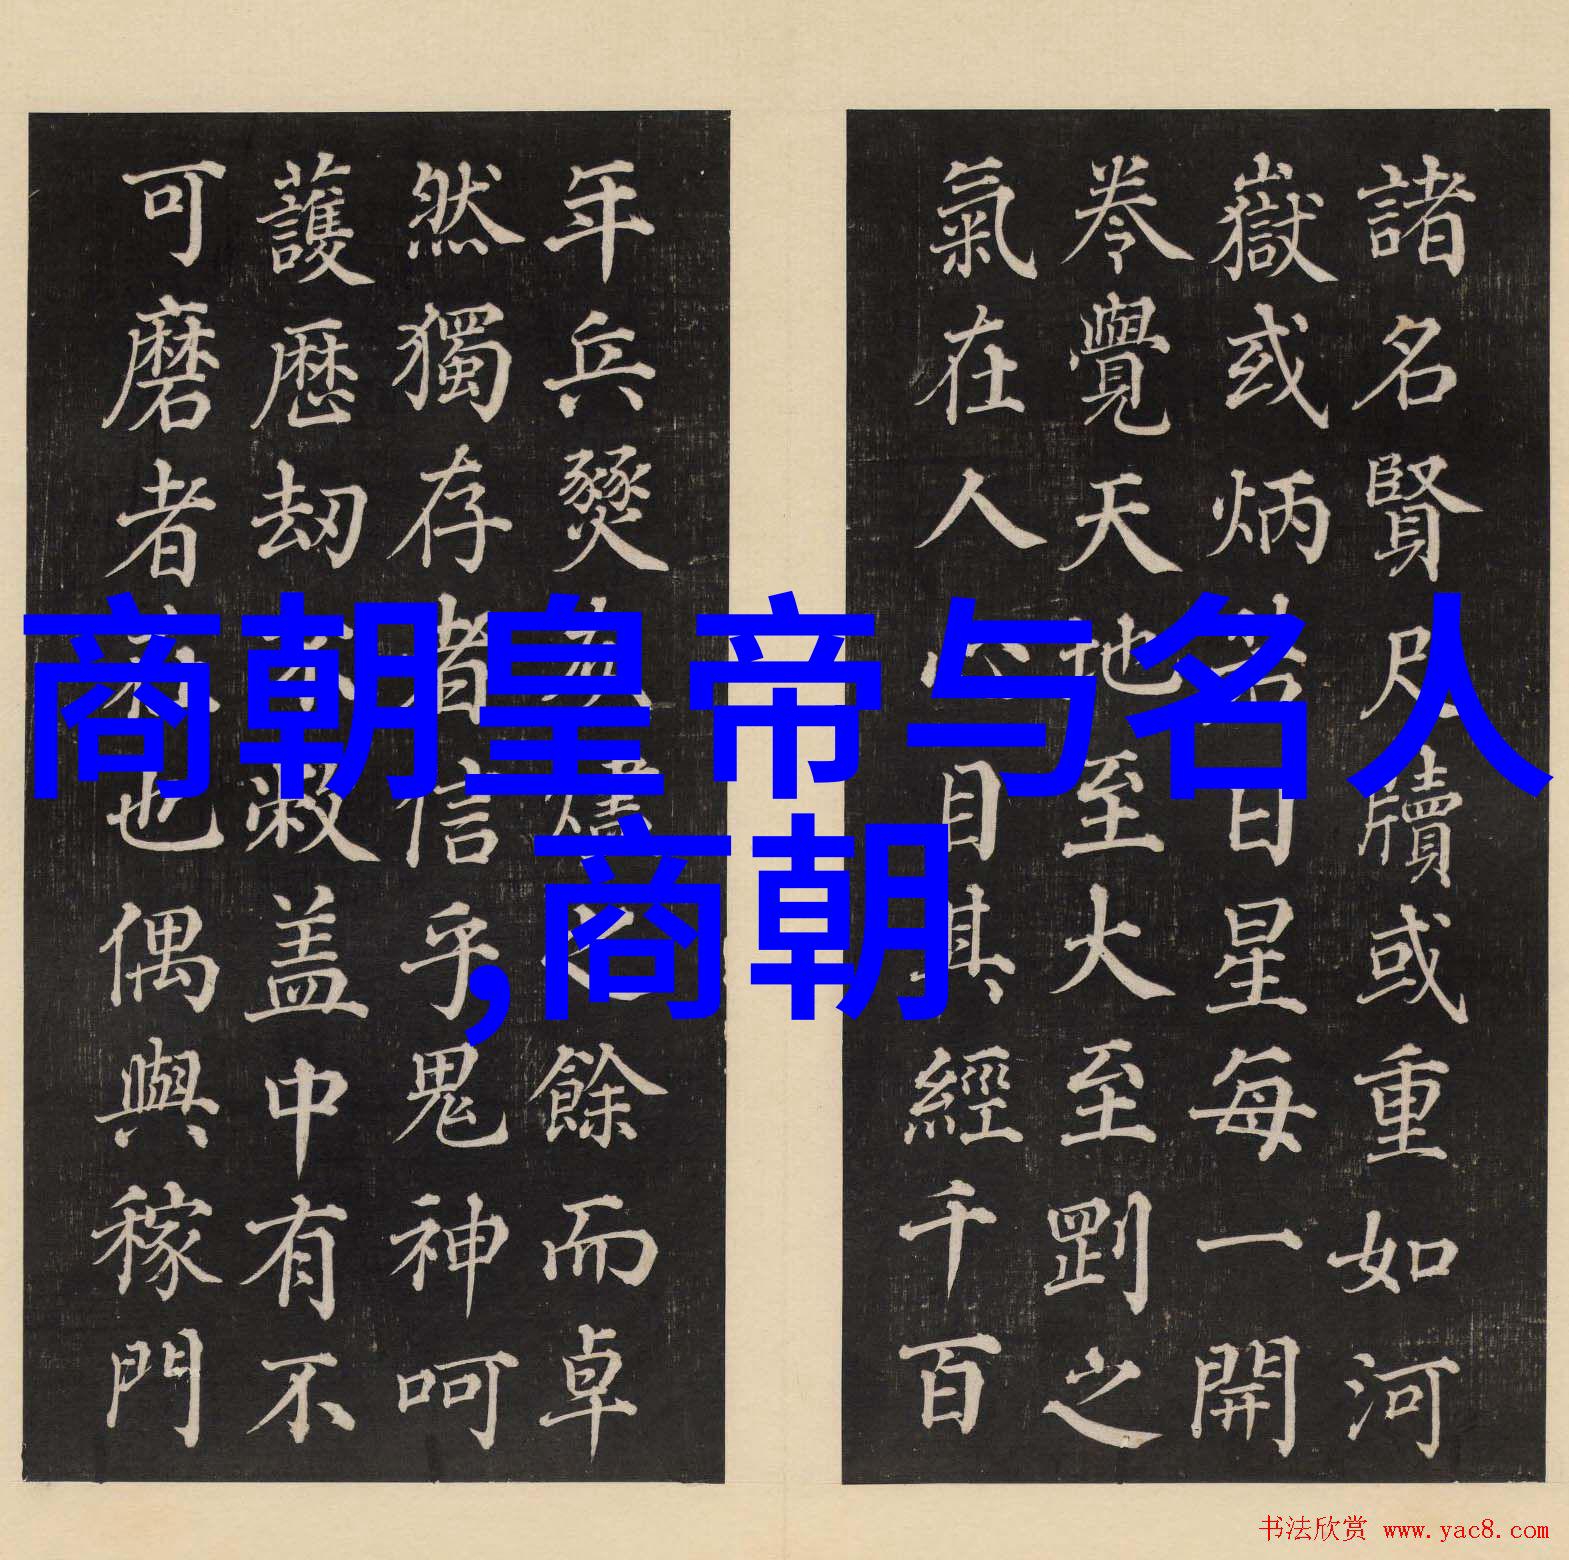 商朝皇帝与名人
,商朝
諸名賢尺牘或重如河
嶽或炳若日星每一開
卷覺天地至大至剛之
氣在人心目其經千百
年兵燹之餘而卓
然獨存者信乎鬼神呵
護厯劫不敝盖中有不
可磨者也偶與稼門
书法欣赏 www.yac8.com